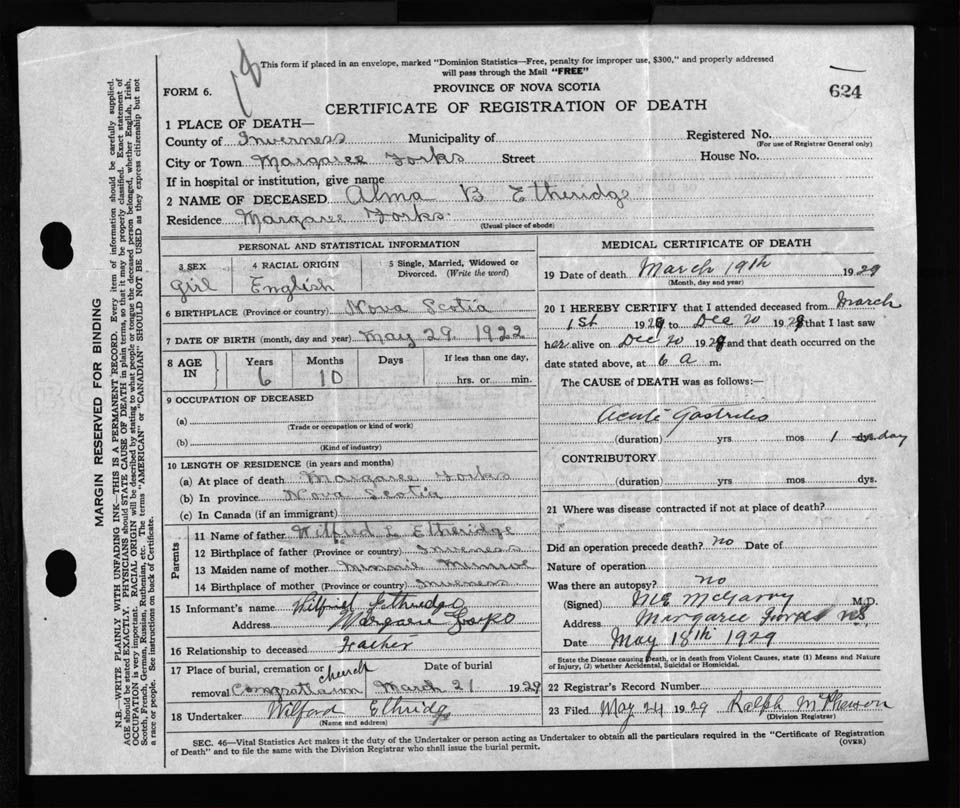 18
This form if placed in an envelope, marked "Dominion Statistics—Free, penalty for improper use, $300," and properly addressed
will pass through the Mail "FREE"
FORM 6.
PROVINCE OF NOVA SCOTIA
624
CERTIFICATE OF REGISTRATION OF DEATH
1 PLACE OF DEATH—
County of Inverness Municipality of Registered No.
(For use of Registrar General only)
City or Town Margaree Forks Street House No.
If in hospital or institution, give name
2 NAME OF DECEASED Alma B Etheridge
Residence Margaree Forks.
(Usual place of abode)
PERSONAL AND STATISTICAL INFORMATION
3 SEX 4 RACIAL ORIGIN 5 Single, Married, Widowed or
Divorced. (Write the word)
Girl English
6 BIRTHPLACE (Province or country) Nova Scotia
7 DATE OF BIRTH (month, day and year) May 29, 1922
8 AGE IN Years Months Days If less than one day,
6 10 hrs. or min.
9 OCCUPATION OF DECEASED
(a)
(Trade or occupation or kind of work)
(b)
(Kind of industry)
10 LENGTH OF RESIDENCE (in years and months)
(a) At place of death Margaree Forks
(b) In province Nova Scotia
(c) In Canada (if an immigrant)
Parents
11 Name of father Wilfred L Etheridge
12 Birthplace of father (Province or country) Inverness
13 Maiden name of mother Minnie Munroe
14 Birthplace of mother (Province or country) Inverness
15 Informant's name Wilfred Etheridge
Address Margaree Forks
16 Relationship to deceased Father
17 Place of burial, cremation or church Date of burial
removal March 21 1929
18 Undertaker Wilford Ethridge
(Name and address)
MEDICAL CERTIFICATE OF DEATH
19 Date of death March 19th 1929
(Month, day and year)
20 I HEREBY CERTIFY that I attended deceased from March
1st 1929 to Dec 20 1928 that I last saw
her alive on Dec 20 1928 and that death occurred on the
date stated above, at 6 a m.
The CAUSE of DEATH was as follows:—
Acute Gastritis
(duration) yrs mos 1 dys. day
CONTRIBUTORY
(duration) yrs. mos. dys.
21 Where was disease contracted if not at place of death?
Did an operation precede death? no Date of
Nature of operation
Was there an autopsy? no
(Signed) McGarry M.D.
Address Margaree Forks NS
Date May 18th 1929
State the Disease causing Death, or in death from Violent Causes, state (1) Means and Nature
of Injury, (2) whether Accidental, Suicidal or Homicidal.
22 Registrar's Record Number
23 Filed May 24 1929 Ralph McPherson
(Division Registrar)
SEC. 46—Vital Statistics Act makes it the duty of the Undertaker or person acting as Undertaker to obtain all the particulars required in the "Certificate of Registration
of Death" and to file the same with the Division Registrar who shall issue the burial permit.
(OVER)
MARGIN RESERVED FOR BINDING
N.B.—WRITE PLAINLY, WITH UNFADING INK—THIS IS A PERMANENT RECORD. Every item of information should be carefully supplied.
AGE should be stated EXACTLY. PHYSICIANS should STATE CAUSE OF DEATH in plain terms, so that it may be properly classified. Exact statement of
OCCUPATION is very important. RACIAL ORIGIN will be described by stating to what people or tongue the deceased person belonged, whether English, Irish,
Scotch, French, German, Russian, Ruthenian, etc. The terms "AMERICAN" or "CANADIAN" SHOULD NOT BE USED as they express citizenship but not
a race or people. See instructions on back of Certificate.